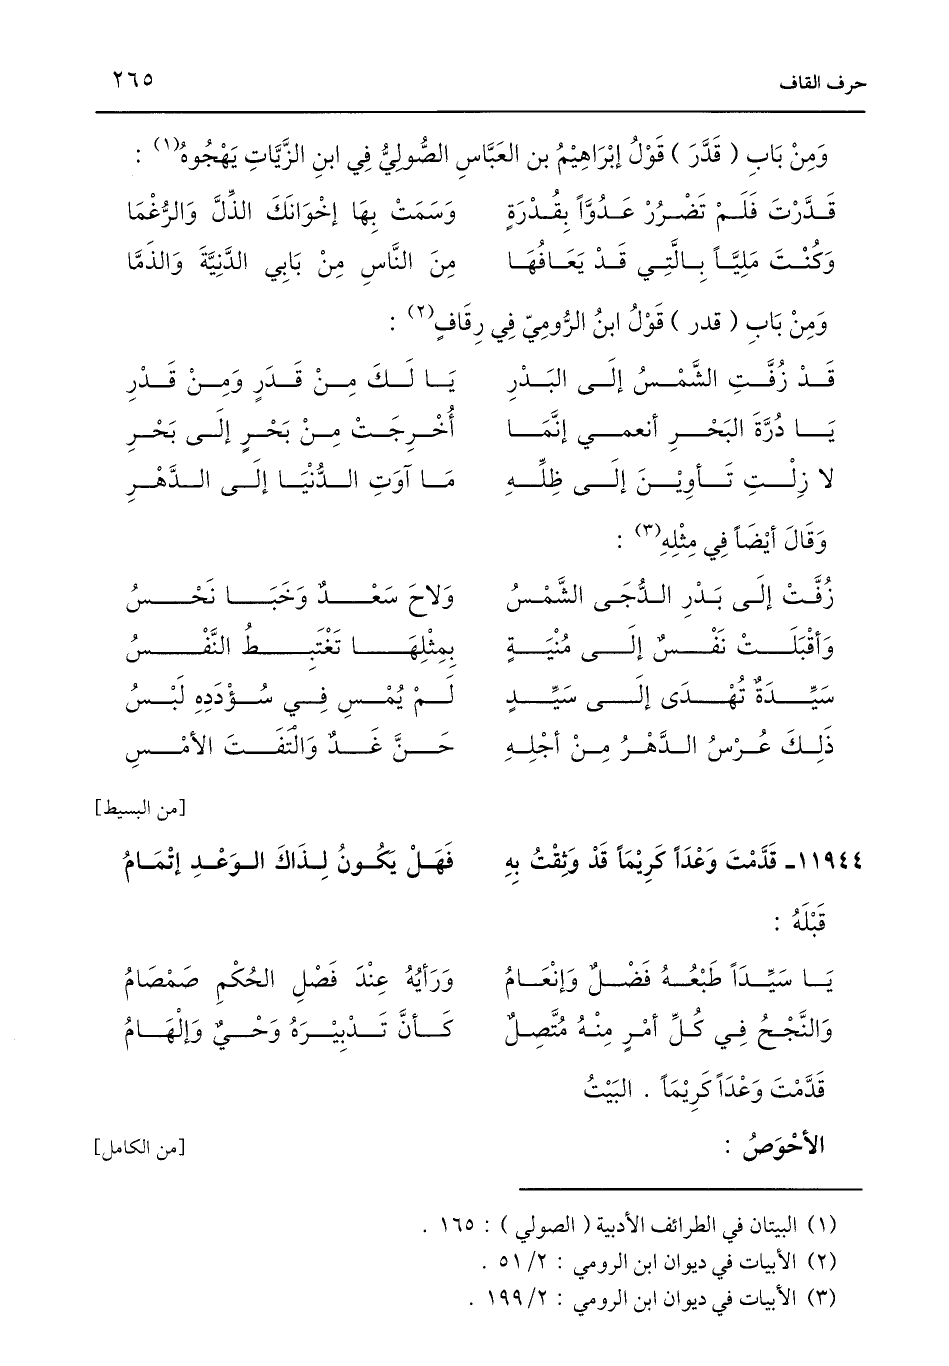 حرف القاف ٢٦٥
وَمِنْ بَابِ ( قَدَّرَ ) قَوْلُ إبْرَاهِيْمُ بن العَبَّاسِ الصُّولِيُّ فِي ابنِ الزَّيَّاتِ يَهْجُوهُ(١) :
قَدَّرْتَ فَلَمْ تَضْرُرْ عَدُوَّاً بِقُدْرَةٍ وَسَمَتْ بِهَا إخْوَانَكَ الذِّلَّ وَالرُّغْمَا
وَكُنْتَ مَلِيَّاً بِالَّتِي قَدْ يَعَافُهَا مِنَ النَّاسِ مِنْ بَابِي الدَّنِيَّةَ وَالذَمَّا
وَمِنْ بَابِ ( قدر ) قَوْلُ ابنُ الرُّومِيّ فِي رِقَافٍ(٢) :
قَدْ زُفَّتِ الشَّمْسُ إلَى البَدْرِ يَا لَكَ مِنْ قَدَرٍ وَمِنْ قَدْرِ
يَا دُرَّةَ البَحْرِ أنعمي إنَّمَا أُخْرِجَتْ مِنْ بَحْرٍ إلَى بَحْرِ
لا زِلْتِ تَأوِيْنَ إلَى ظِلِّهِ مَا آوَتِ الدُّنْيَا إلَى الدَّهْرِ
وَقَالَ أَيْضَاً فِي مِثْلِهِ(٣) :
زُفَّتْ إلَى بَدْرِ الدُّجَى الشَّمْسُ وَلاحَ سَعْدٌ وَخَبَا نَحْسُ
وَأقْبَلَتْ نَفْسٌ إلَى مُنْيَةٍ بِمِثْلِهَا تَغْتَبِطُ النَّفْسُ
سَيِّدَةٌ تُهْدَى إلَى سَيِّدٍ لَمْ يُمْسِ فِي سُؤْدَدِهِ لَبْسُ
ذَلِكَ عُرْسُ الدَّهْرُ مِنْ أجْلِهِ حَنَّ غَدٌ وَالْتَفَتَ الأمْسِ
[من البسيط]
١١٩٤٤ـ قَدَّمْتَ وَعْدَاً كَرِيْمَاً قَدْ وَثِقْتُ بِهِ فَهَلْ يَكُونُ لِذَاكَ الوَعْدِ إتْمَامُ
قَبْلَهُ :
يَا سَيِّدَاً طَبْعُهُ فَضْلٌ وَإنْعَامُ وَرَأيُهُ عِنْدَ فَصْلِ الحُكْمِ صَمْصَامُ
وَالنَّجْحُ فِي كُلِّ أمْرٍ مِنْهُ مُتَّصِلٌ كَأنَّ تَدْبِيْرَهُ وَحْيٌ وَإلْهَامُ
قَدَّمْتَ وَعْدَاً كَرِيْمَاً . البَيْتُ
الأحْوَصُ : [من الكامل]
(١) البيتان في الطرائف الأدبية ( الصولي ) : ١٦٥ .
(٢) الأبيات في ديوان ابن الرومي : ٢/ ٥١ .
(٣) الأبيات في ديوان ابن الرومي : ٢/ ١٩٩ .